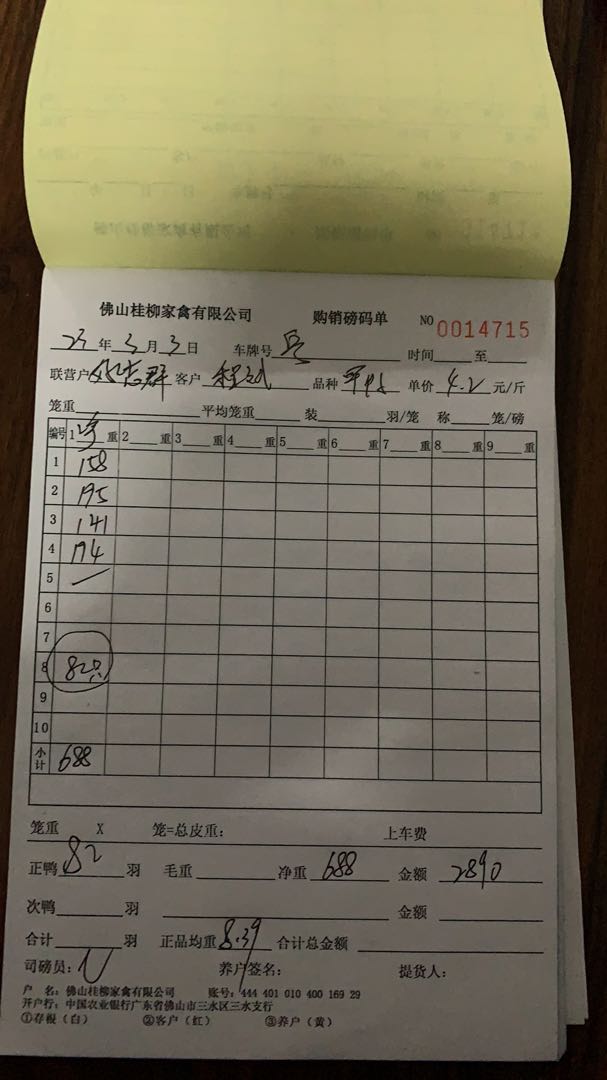 佛山桂柳家禽有限公司 购销磅码单 NO 0014715
23年3月3日 车牌号 时间 至
联营户 志群 客户 程 品种 单价 4.2 元/斤
笼重 平均笼重 装 羽/笼 称 笼/磅
编号 1 净 重 2 重 3 重 4 重 5 重 6 重 7 重 8 重 9 重
1 158
2 195
3 141
4 194
5
6
7
8 82只
9
10
小计 688
笼重 X 笼=总皮重： 上车费
正鸭 82 羽 毛重 净重 688 金额 2890
次鸭 羽 金额
合计 羽 正品均重 8.39 合计总金额
司磅员： 养户签名： 提货人：
户 名：佛山桂柳家禽有限公司 账号：444 401 010 400 169 29
开户行：中国农业银行广东省佛山市三水区三水支行
①存根（白） ②客户（红） ③养户（黄）